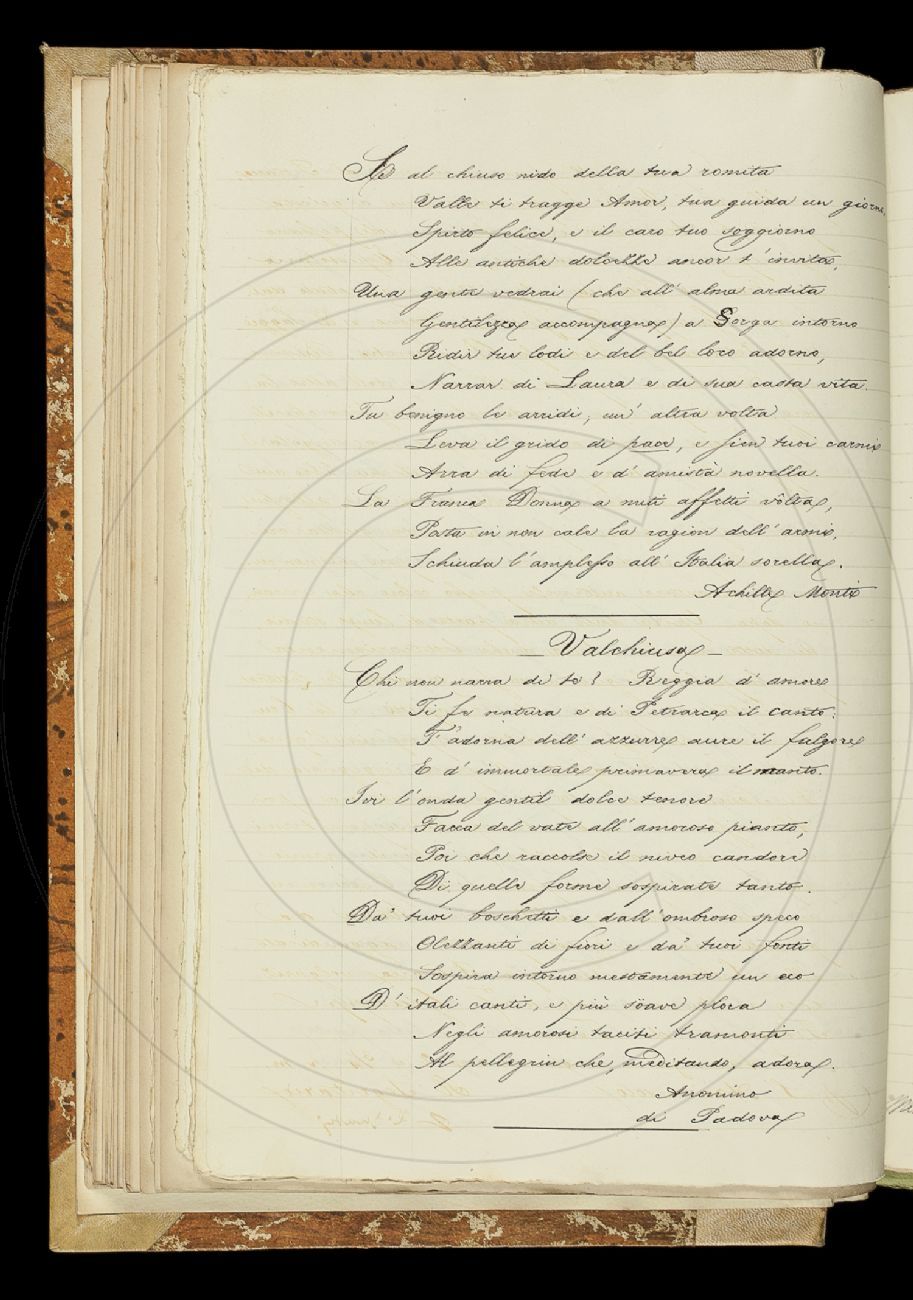 Se al chiuso nido della tua romita
Valle ti tragge Amor, tua guida un giorno,
Spirto felice, e il caro tuo soggiorno
Alle antiche dolcezze ancor t'invita,
Una gente vedrai (che all'alma ardita
Gentilezza accompagna) a Sorga intorno
Ridir tue lodi e del bel loco adorno,
Narrar di Laura e di sua casta vita.
Tu benigno le arridi; un'altra volta
Leva il grido di pace, e sien tuoi carmi
Arra di fede e d'amistà novella.
La Franca Donna a miti affetti vôlta,
Posta in non cale la ragion dell'armi,
Schiuda l'amplesso all'Italia sorella.
Achille Monti
Valchiusa
Chi non narra di te? Reggia d'amore
Ti fe natura e di Petrarca il canto:
T'adorna dell'azzurre aure il fulgore
E d'immortale primavera il manto.
Ivi l'onda gentil dolce tenore
Facea del vate all'amoroso pianto,
Poi che raccolse il niveo candore
Di quelle forme sospirate tanto.
Da' tuoi boschetti e dall'ombroso speco
Olezzanti di fiori e da' tuoi fonti
Sospira intorno mestamente un eco
D'itali canti, e più söave plora
Negli amorosi taciti tramonti
Al pellegrin che, meditando, adora.
Anonimo
di Padova